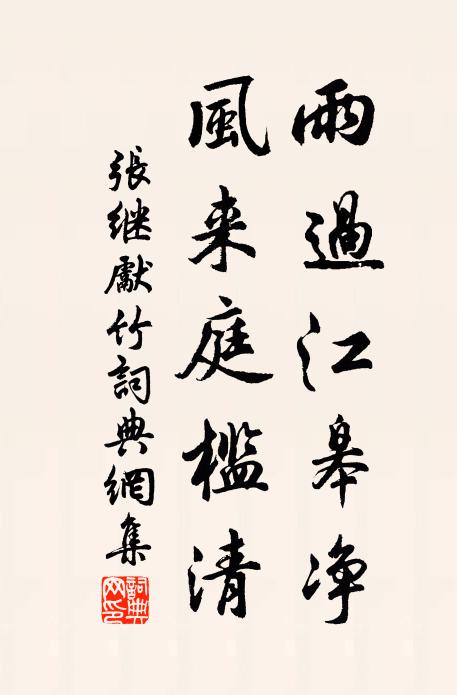 雨過江皋净
風来庭檻清
張继獻竹詞典網集
詞典網印